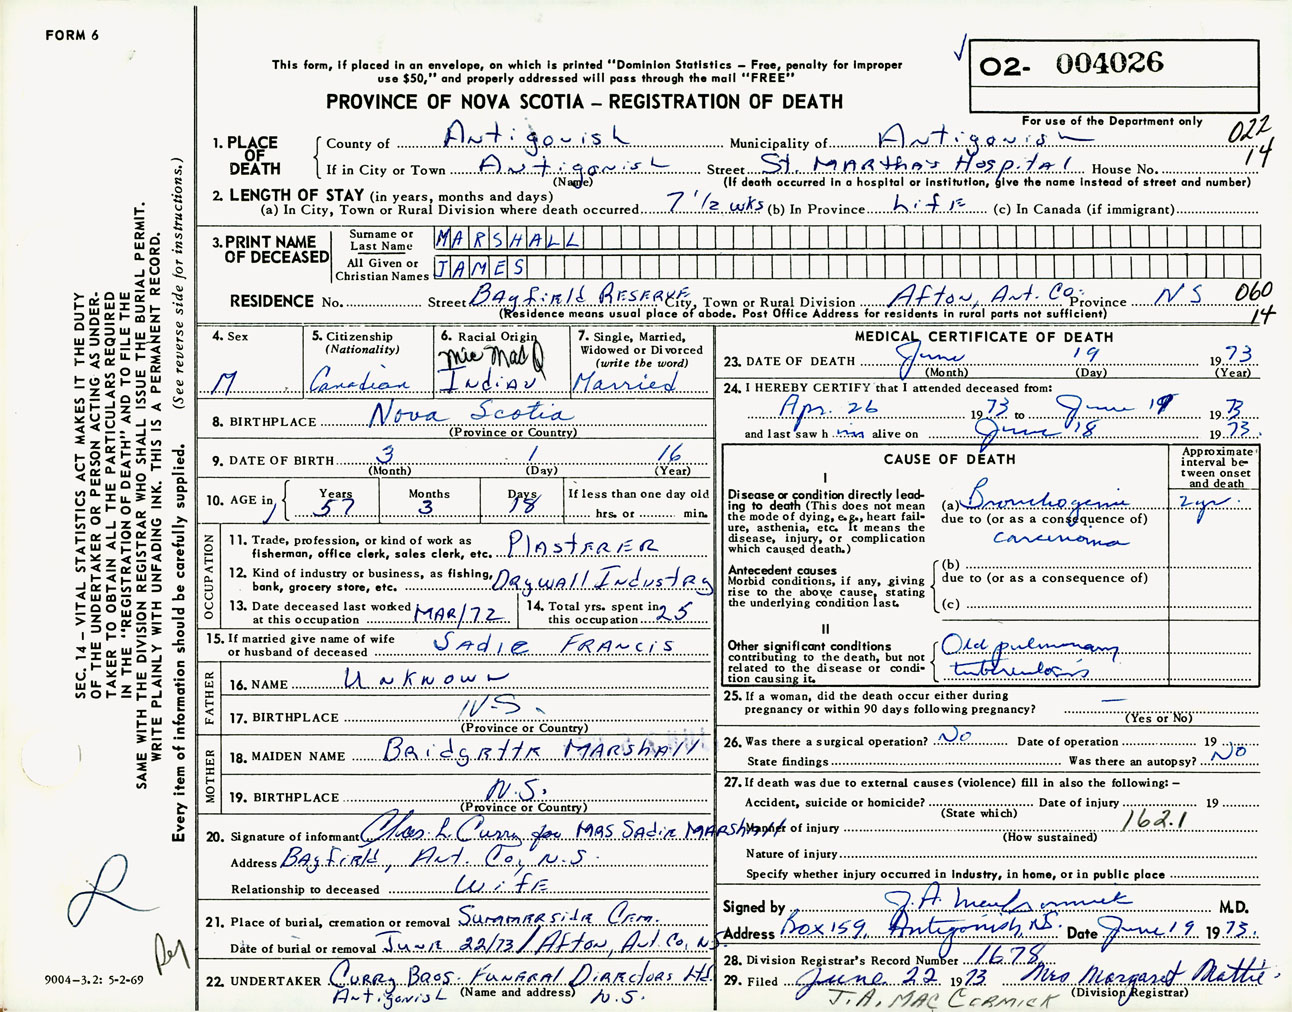 FORM 6
This form, if placed in an envelope, on which is printed "Dominion Statistics – Free, penalty for improper
use $50," and properly addressed will pass through the mail "FREE"
O2- 004026
For use of the Department only
PROVINCE OF NOVA SCOTIA – REGISTRATION OF DEATH
022
14
1. PLACE OF DEATH
County of Antigonish Municipality of Antigonish
If in City or Town Antigonish Street St. MARTHA'S HOSPITAL House No.
(Name) (If death occurred in a hospital or institution, give the name instead of street and number)
2. LENGTH OF STAY (in years, months and days)
(a) In City, Town or Rural Division where death occurred 7 1/2 wks (b) In Province LifE (c) In Canada (if immigrant)
3. PRINT NAME OF DECEASED
Surname or Last Name MARSHALL
All Given or Christian Names JAMES
RESIDENCE No. Street Bayfield RESERVE City, Town or Rural Division Afton, Ant. Co. Province NS 060
14
(Residence means usual place of abode. Post Office Address for residents in rural parts not sufficient)
4. Sex
M
5. Citizenship
(Nationality)
Canadian
6. Racial Origin
Mic Mac
Indian
7. Single, Married,
Widowed or Divorced
(write the word)
Married
8. BIRTHPLACE Nova Scotia
(Province or Country)
9. DATE OF BIRTH 3 1 16
(Month) (Day) (Year)
10. AGE in
Years 57
Months 3
Days 18
If less than one day old
hrs. or min.
OCCUPATION
11. Trade, profession, or kind of work as
fisherman, office clerk, sales clerk, etc. PlastERER
12. Kind of industry or business, as fishing,
bank, grocery store, etc. Drywall Industry
13. Date deceased last worked
at this occupation MAR/72
14. Total yrs. spent in
this occupation 25
15. If married give name of wife
or husband of deceased SADIE FRANCIS
FATHER
16. NAME UNKNOWN
17. BIRTHPLACE N.S.
(Province or Country)
MOTHER
18. MAIDEN NAME BridgEttE MARSHAll
19. BIRTHPLACE N.S.
(Province or Country)
20. Signature of informant Chas. L. Curry for MRS SADIE MARSHAll
Address Bayfield, Ant. Co., N.S.
Relationship to deceased WifE
21. Place of burial, cremation or removal SummErsidE CEm.
Date of burial or removal JunE 22/73 / Afton, Ant. Co, NS
22. UNDERTAKER CURRY BROS. FUNERAL DIRECTORS Ltd.
(Name and address)
Antigonish N.S.
MEDICAL CERTIFICATE OF DEATH
23. DATE OF DEATH June 19 1973
(Month) (Day) (Year)
24. I HEREBY CERTIFY that I attended deceased from:
Apr. 26 1973 to June 19 1973
and last saw h im alive on June 18 1973.
CAUSE OF DEATH
Approximate interval between onset and death
I
Disease or condition directly leading to death (This does not mean the mode of dying, e.g., heart failure, asthenia, etc. It means the disease, injury, or complication which caused death.)
(a) Bronchogenic
due to (or as a consequence of)
carcinoma
2 yr.
Antecedent causes
Morbid conditions, if any, giving rise to the above cause, stating the underlying condition last.
(b)
due to (or as a consequence of)
(c)
II
Other significant conditions
contributing to the death, but not related to the disease or condition causing it.
Old pulmonary
tuberculosis
25. If a woman, did the death occur either during
pregnancy or within 90 days following pregnancy? —
(Yes or No)
26. Was there a surgical operation? No Date of operation 19
State findings Was there an autopsy? No
27. If death was due to external causes (violence) fill in also the following: –
Accident, suicide or homicide? Date of injury 19
(State which)
Manner of injury 162.1
(How sustained)
Nature of injury
Specify whether injury occurred in industry, in home, or in public place
Signed by J.A. MacCormick M.D.
Address Box 159, Antigonish, NS. Date June 19 1973.
28. Division Registrar's Record Number 1678
29. Filed June 22 1973 Mrs Margaret Mattie
(Division Registrar)
J. A. MAC CORMICK
SEC. 14 – VITAL STATISTICS ACT MAKES IT THE DUTY
OF THE UNDERTAKER OR PERSON ACTING AS UNDER-
TAKER TO OBTAIN ALL THE PARTICULARS REQUIRED
IN THE "REGISTRATION OF DEATH" AND TO FILE THE
SAME WITH THE DIVISION REGISTRAR WHO SHALL ISSUE THE BURIAL PERMIT.
WRITE PLAINLY WITH UNFADING INK. THIS IS A PERMANENT RECORD.
Every item of information should be carefully supplied. (See reverse side for instructions.)
9004–3.2: 5-2-69